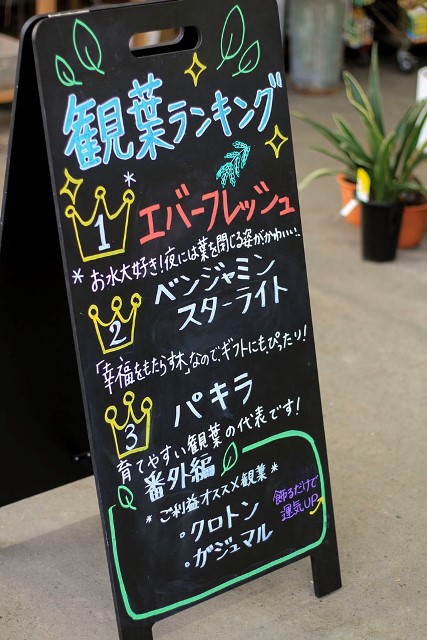 観葉ランキング
1 エバーフレッシュ
*お水大好き!夜には葉を閉じる姿がかわいい!
2 ベンジャミン
スターライト
「幸福をもたらす木」なのでギフトにもぴったり!
3 パキラ
育てやすい観葉の代表です!
番外編
*ご利益オススメ観葉*
・クロトン
・ガジュマル
飾るだけで
運気UP